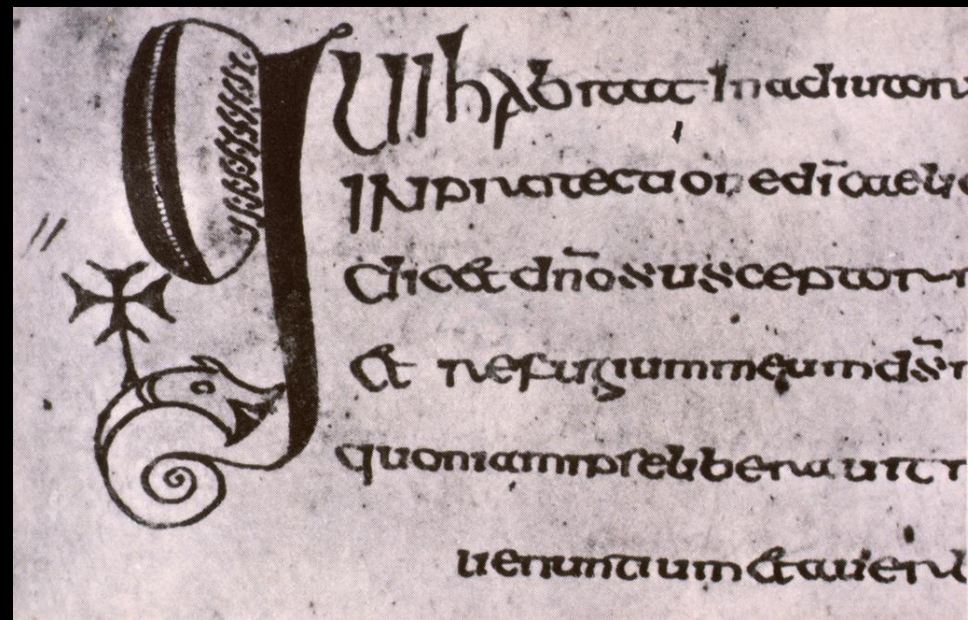 QUI habitat In adiutori
IN protectione dī caeli
dicet dn̄o susceptor
Et refugium meum ds̄
quoniam ipse liberauit
uenantium et a uerb